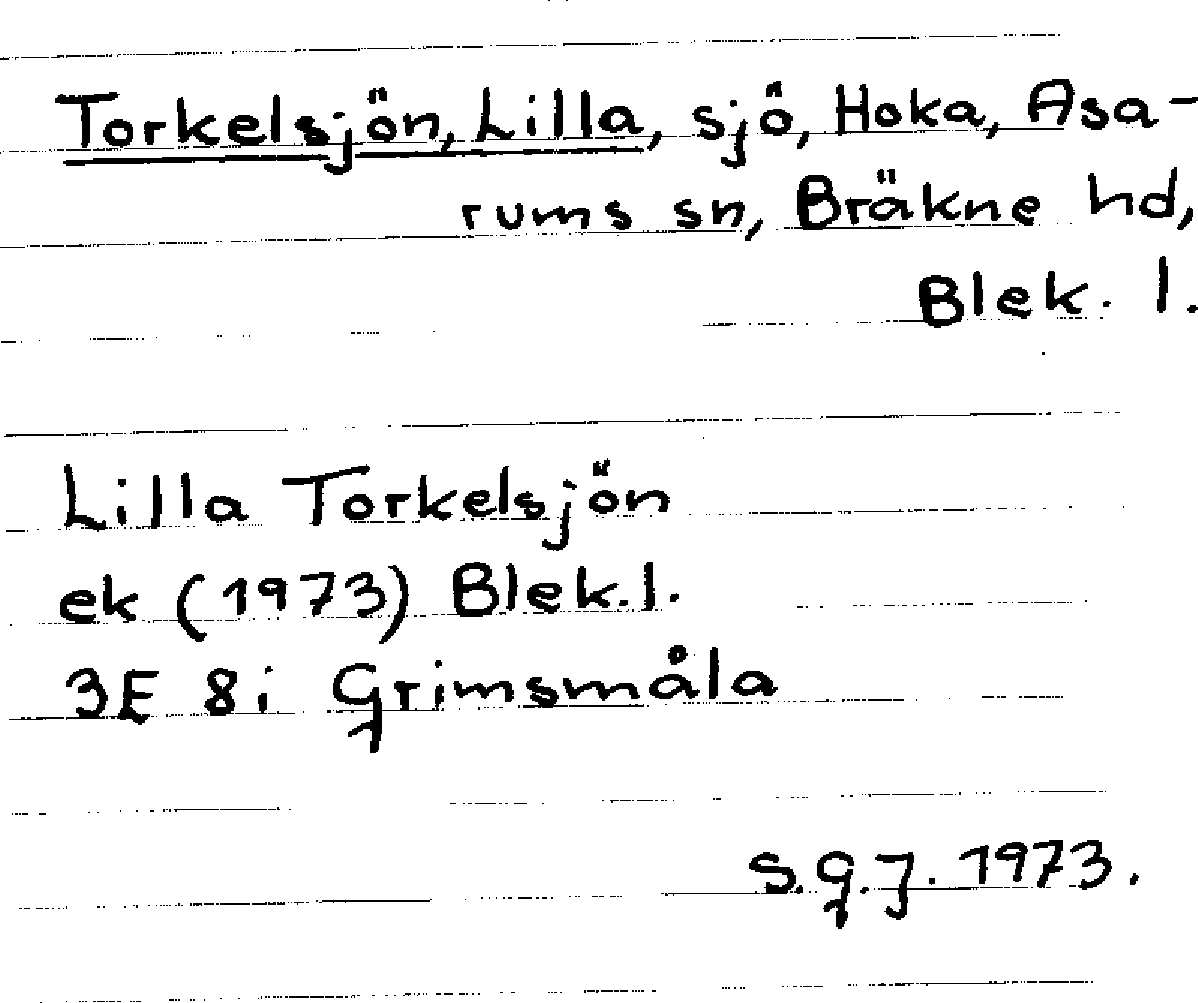 Torkelsjön, Lilla, sjö, Hoka, Asa-
rums sn, Bräkne hd,
Blek. l.
Lilla Torkelsjön
ek (1973) Blek.l.
3E 8i Grimsmåla
S.G.J. 1973.